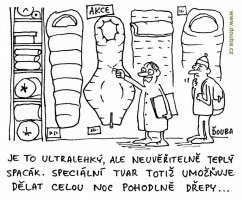 AKCE
www.douba.cz
DOUBA
JE TO ULTRALEHKÝ, ALE NEUVĚŘITELNĚ TEPLÝ
SPACÁK. SPECIÁLNÍ TVAR TOTIŽ UMOŽŇUJE
DĚLAT CELOU NOC POHODLNĚ DŘEPY...